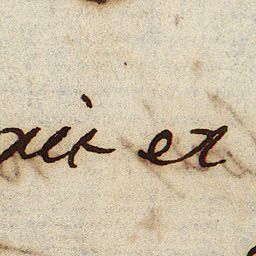 xit et